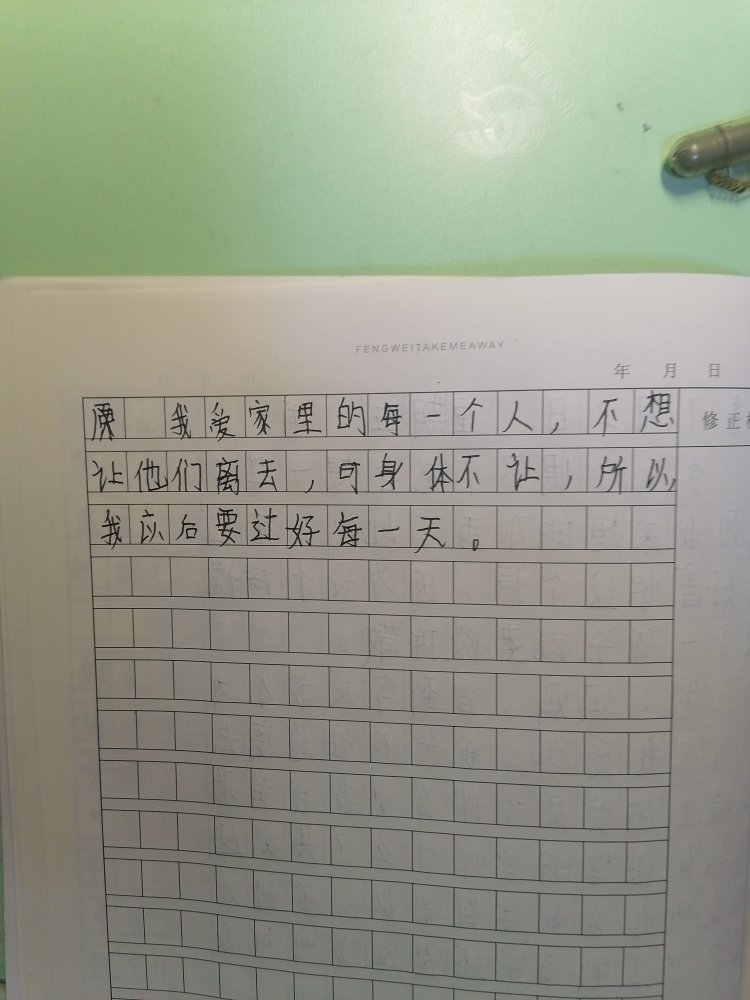 FENGWEITAKEMEAWAY
年 月 日
我爱家里的每一个人，不想
修正
让他们离去，可身体不让，所以，
我以后要过好每一天。